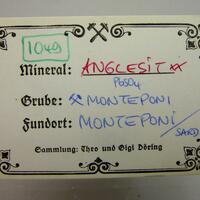 1049
Mineral: ANGLESIT xx
PbSO4
Grube: ⚒ MONTEPONI
Fundort: MONTEPONI / SARD
Sammlung: Theo und Gigi Döring